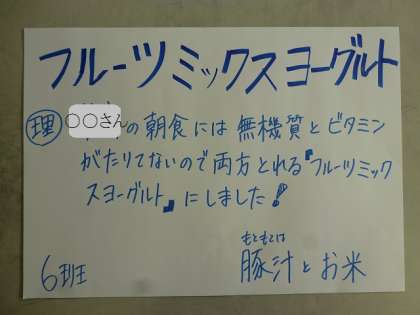 フルーツミックスヨーグルト
理 ○○さんの朝食には無機質とビタミン
がたりてないので両方とれる『フルーツミック
スヨーグルト』にしました!
もともとは
豚汁とお米
6班